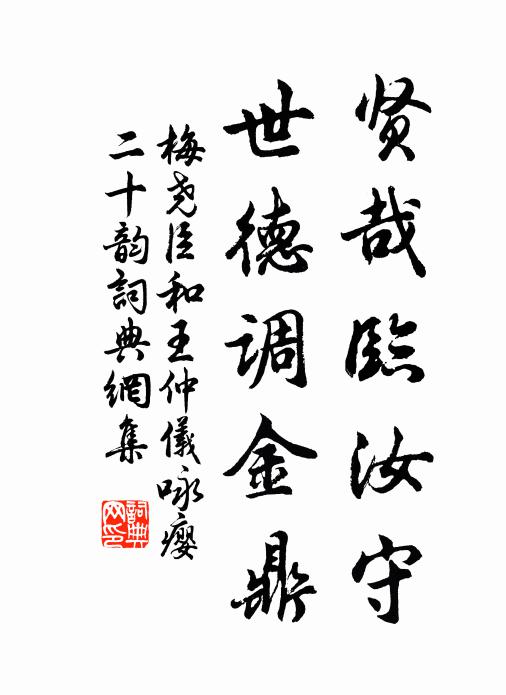 贤哉臨汝守
世德调金鼎
梅尧臣和王仲儀咏瘿
二十韵詞典網集
詞典
网印